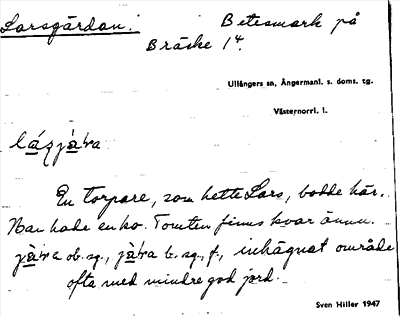 Larsgårdan. Betesmark på
Bräcke 14.
Ullångers sn, Ångermanl. s. doms. tg.
Västernorrl. l.
En torpare, som hette Lars, bodde här.
Han hade en ko. Tomten finns kvar ännu.
ob. sg., b. sg., f., inhägnat område
ofta med mindre god jord.
Sven Hiller 1947